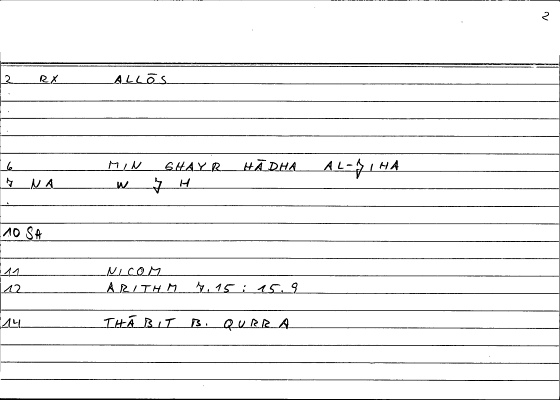 2
2 RX ALLŌS
6 MIN GHAYR HĀDHA AL-JIHA
7 NA W J H
10 SA
11 NICOM
12 ARITHM 7.15 : 15.9
14 THĀBIT B. QURRA